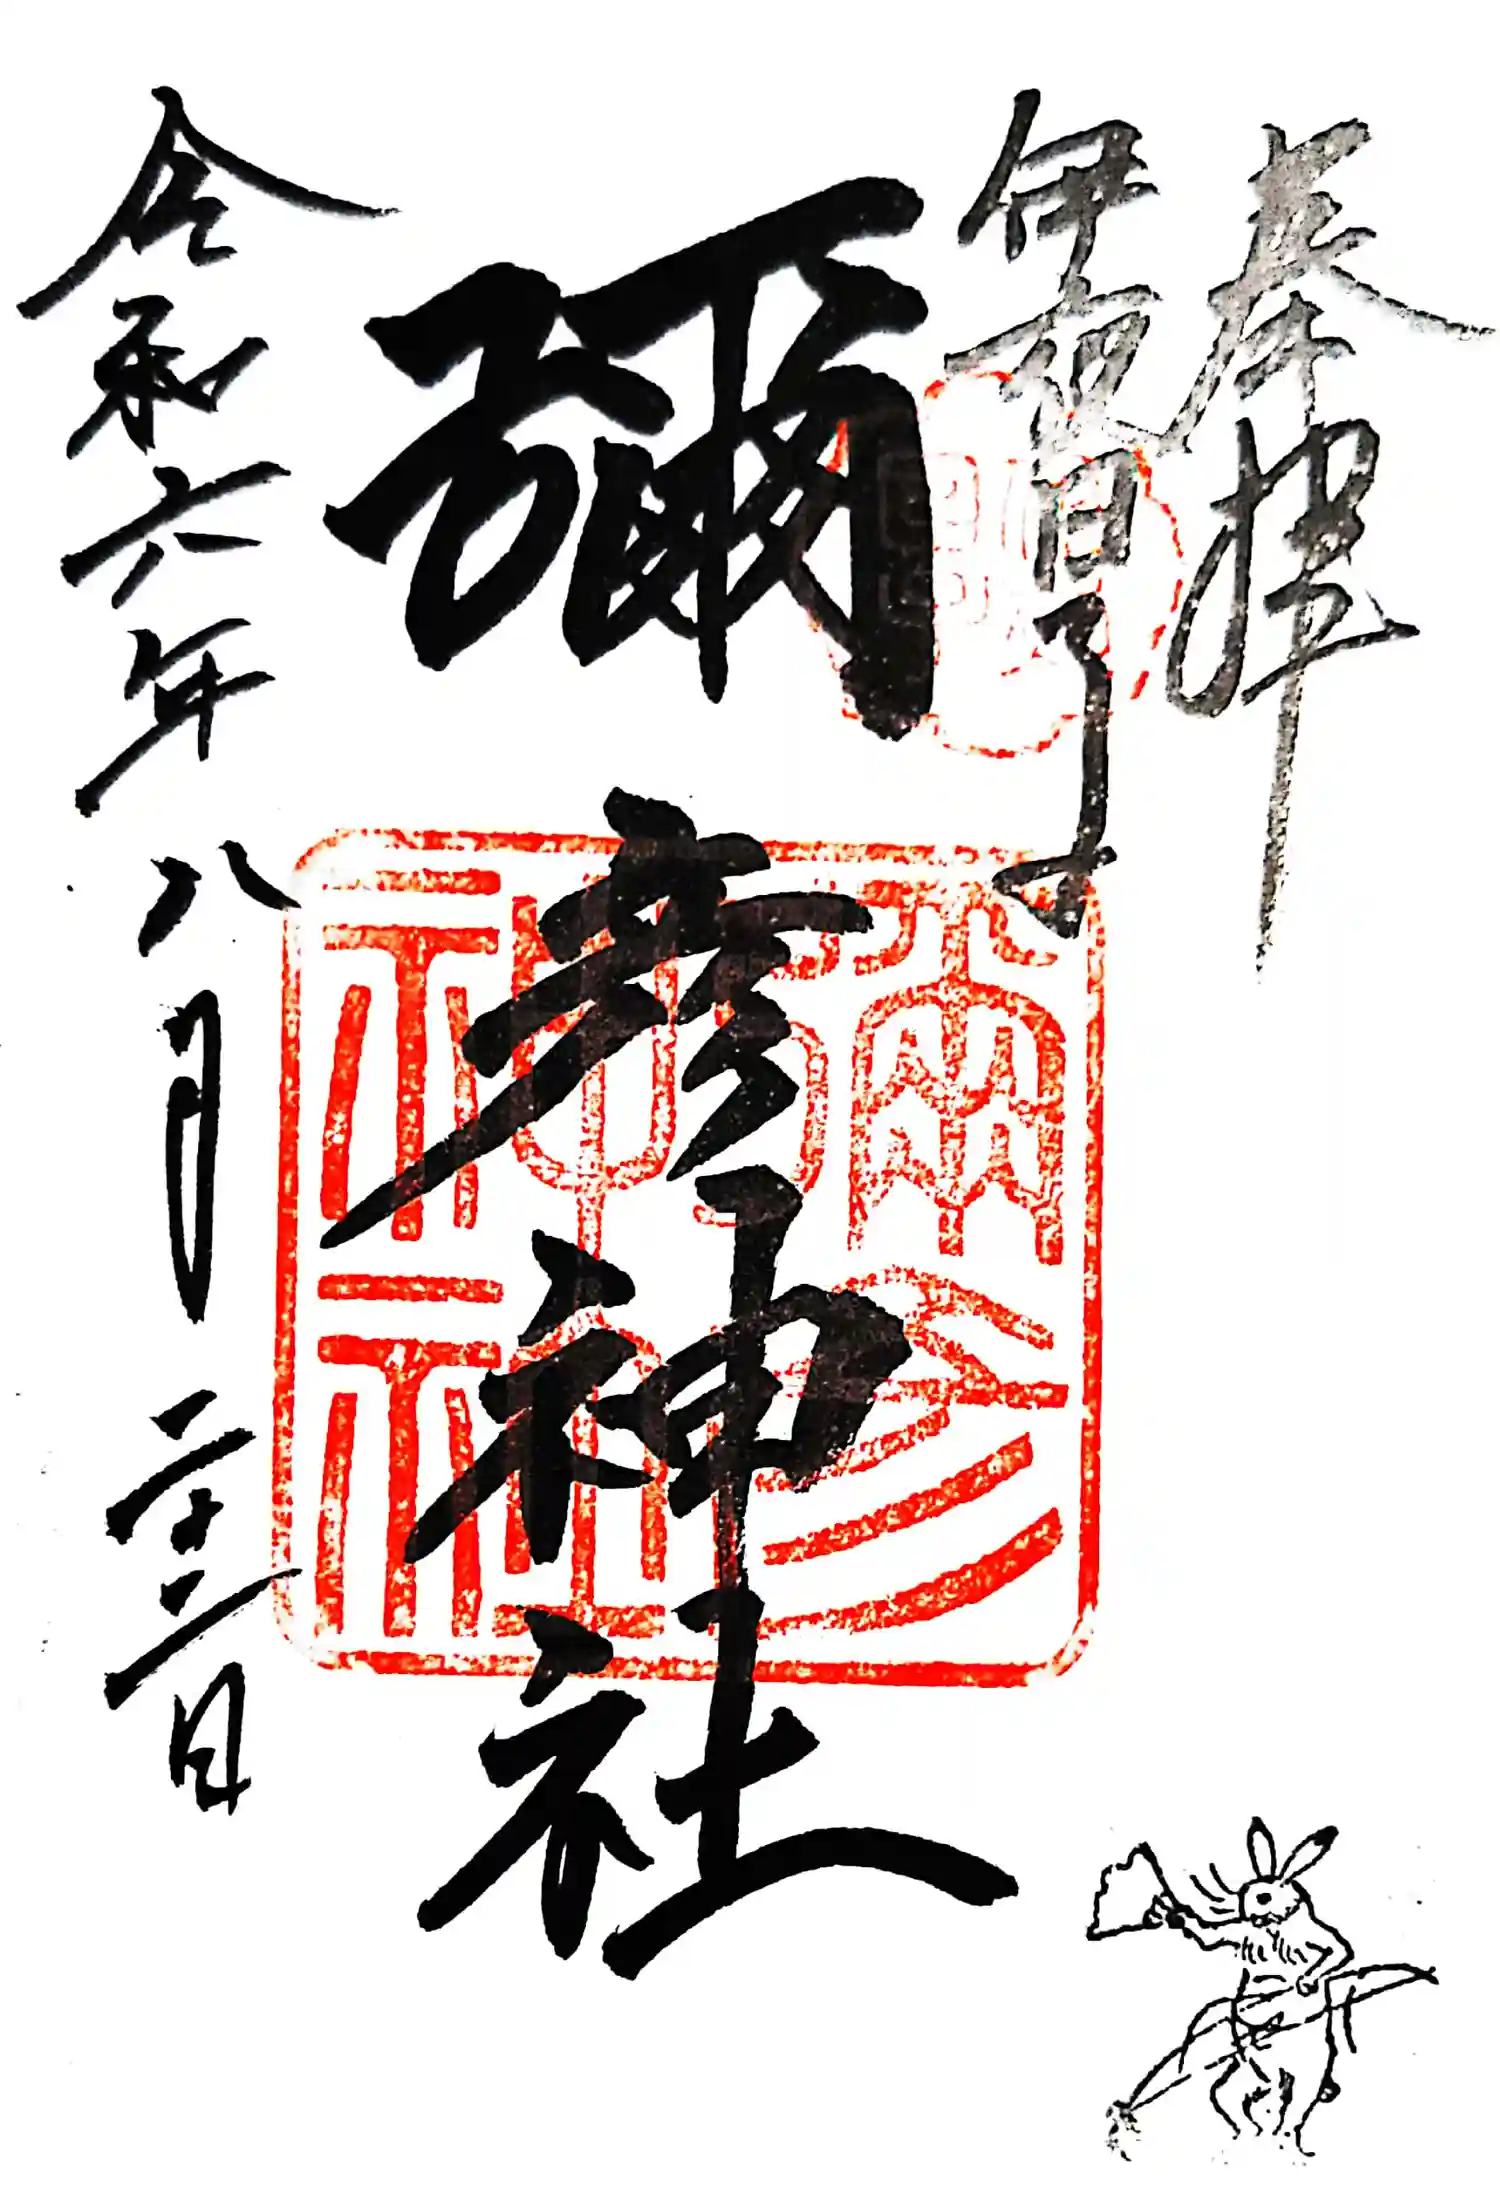 奉拝
伊夜日子
彌彦神社
彌彦神社
令和六年八月二十二日